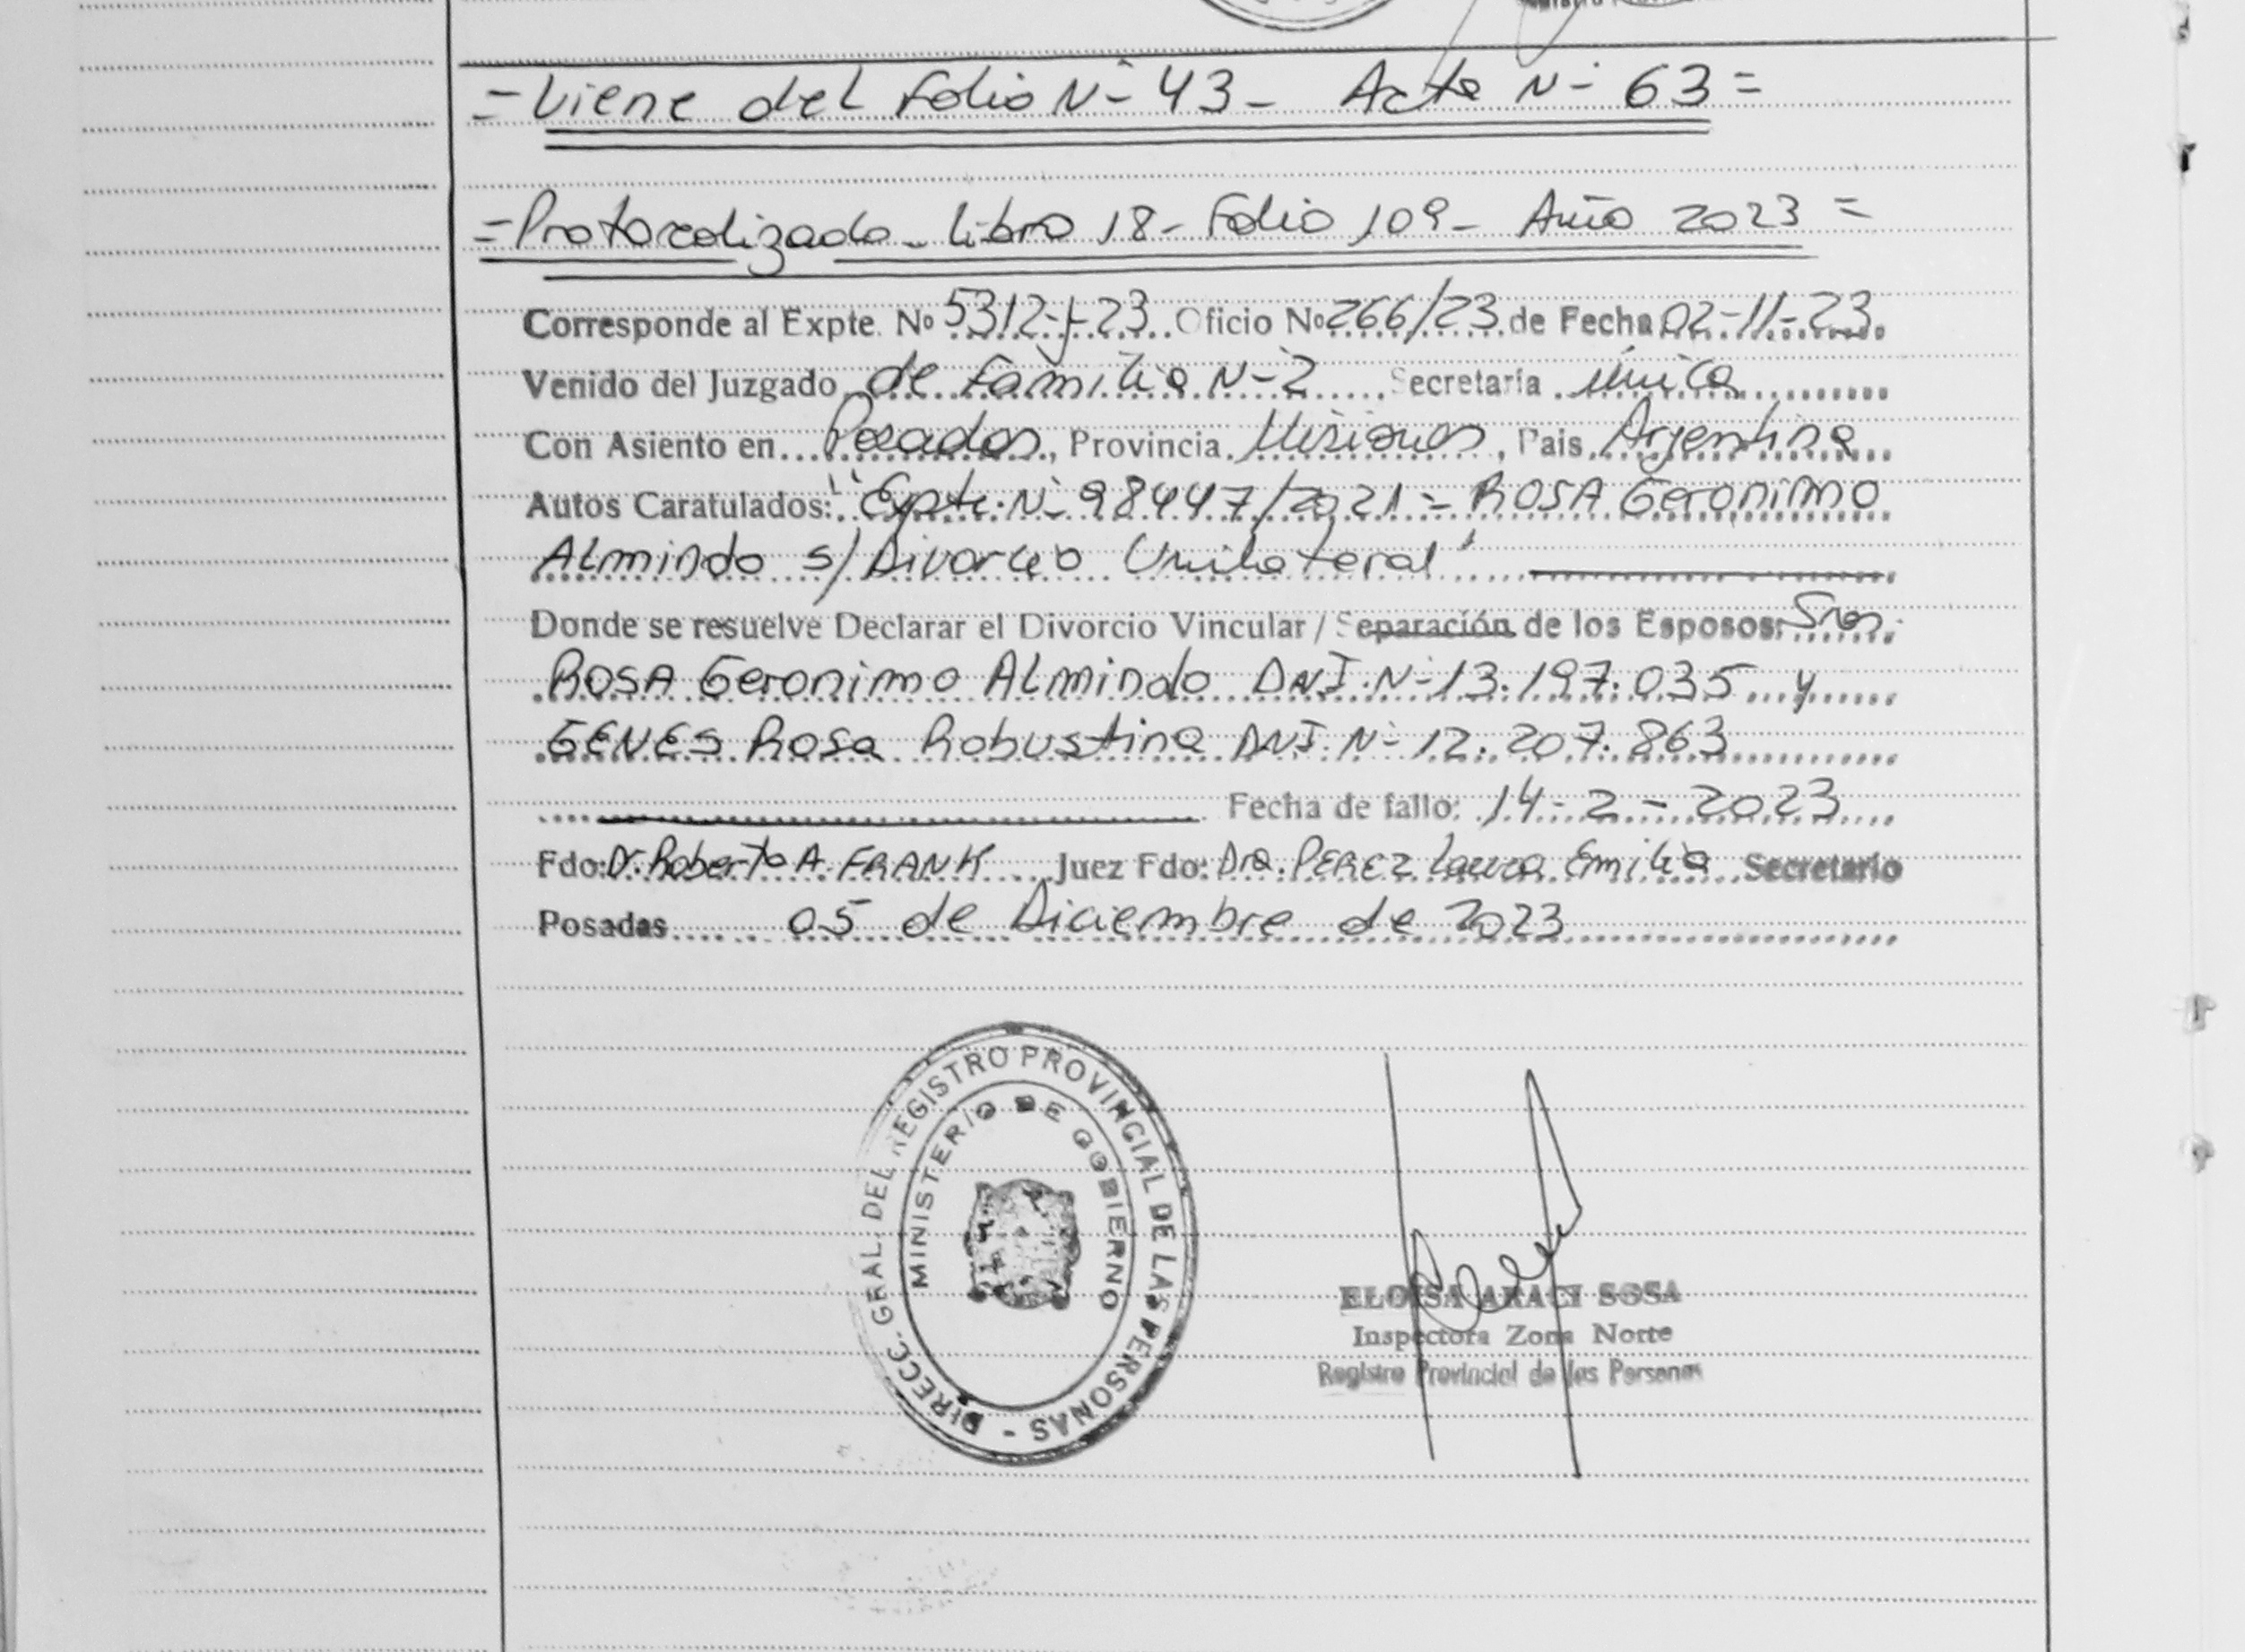 = Viene del Folio N- 43 - Acta N- 63 =
= Protocolizado - Libro 18 - Folio 109 - Año 2023 =
Corresponde al Expte. Nº 5312-J-23 Oficio Nº 266/23 de Fecha 02-11-23
Venido del Juzgado de Familia N-2 Secretaría única
Con Asiento en Posadas, Provincia Misiones, Pais Argentina
Autos Caratulados: "Expte. N- 98447/2021 - ROSA Geronimo
Almindo s/ Divorcio Unilateral"
Donde se resuelve Declarar el Divorcio Vincular / Separación de los Esposos: Sres.
ROSA Geronimo Almindo DNI. N- 13.197.035 y
GENES Rosa Robustina DNI. N- 12.207.863
Fecha de fallo: 14-2-2023
Fdo: Dr. Roberto A. FRANK Juez Fdo: Dra. PEREZ Laura Emilia Secretario
Posadas 05 de Diciembre de 2023
DIRECC. GRAL. DEL REGISTRO PROVINCIAL DE LAS PERSONAS -
MINISTERIO DE GOBIERNO
ELOISA ARACI SOSA
Inspectora Zona Norte
Registro Provincial de las Personas